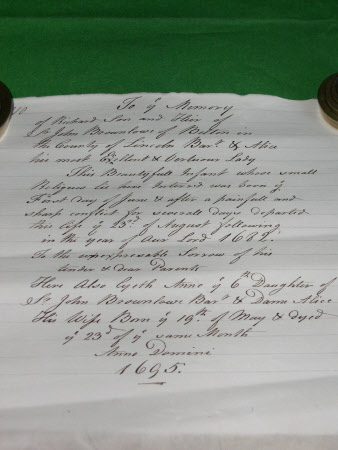 10
To ye Memory
of Richard Son and Heir of
Sr John Brownlowe of Belton in
the County of Lincoln Bart & Alice
his most Exellent & Vertuous Lady
This Beautyfull Infant whose small
Religues lie here Interred was born ye
First day of June & after a painfull and
sharp conflict for severall days departed
this life ye 23d of August following
in the year of Our Lord 1682.
To the unexpressable Sorrow of his
tender & dear Parents
Here Also lyeth Anne ye 6th Daughter of
Sr John Brownlowe Bart & Dame Alice
His Wife Born ye 19th of May & dyed
ye 23d of ye same Month
Anno Domini
1695.